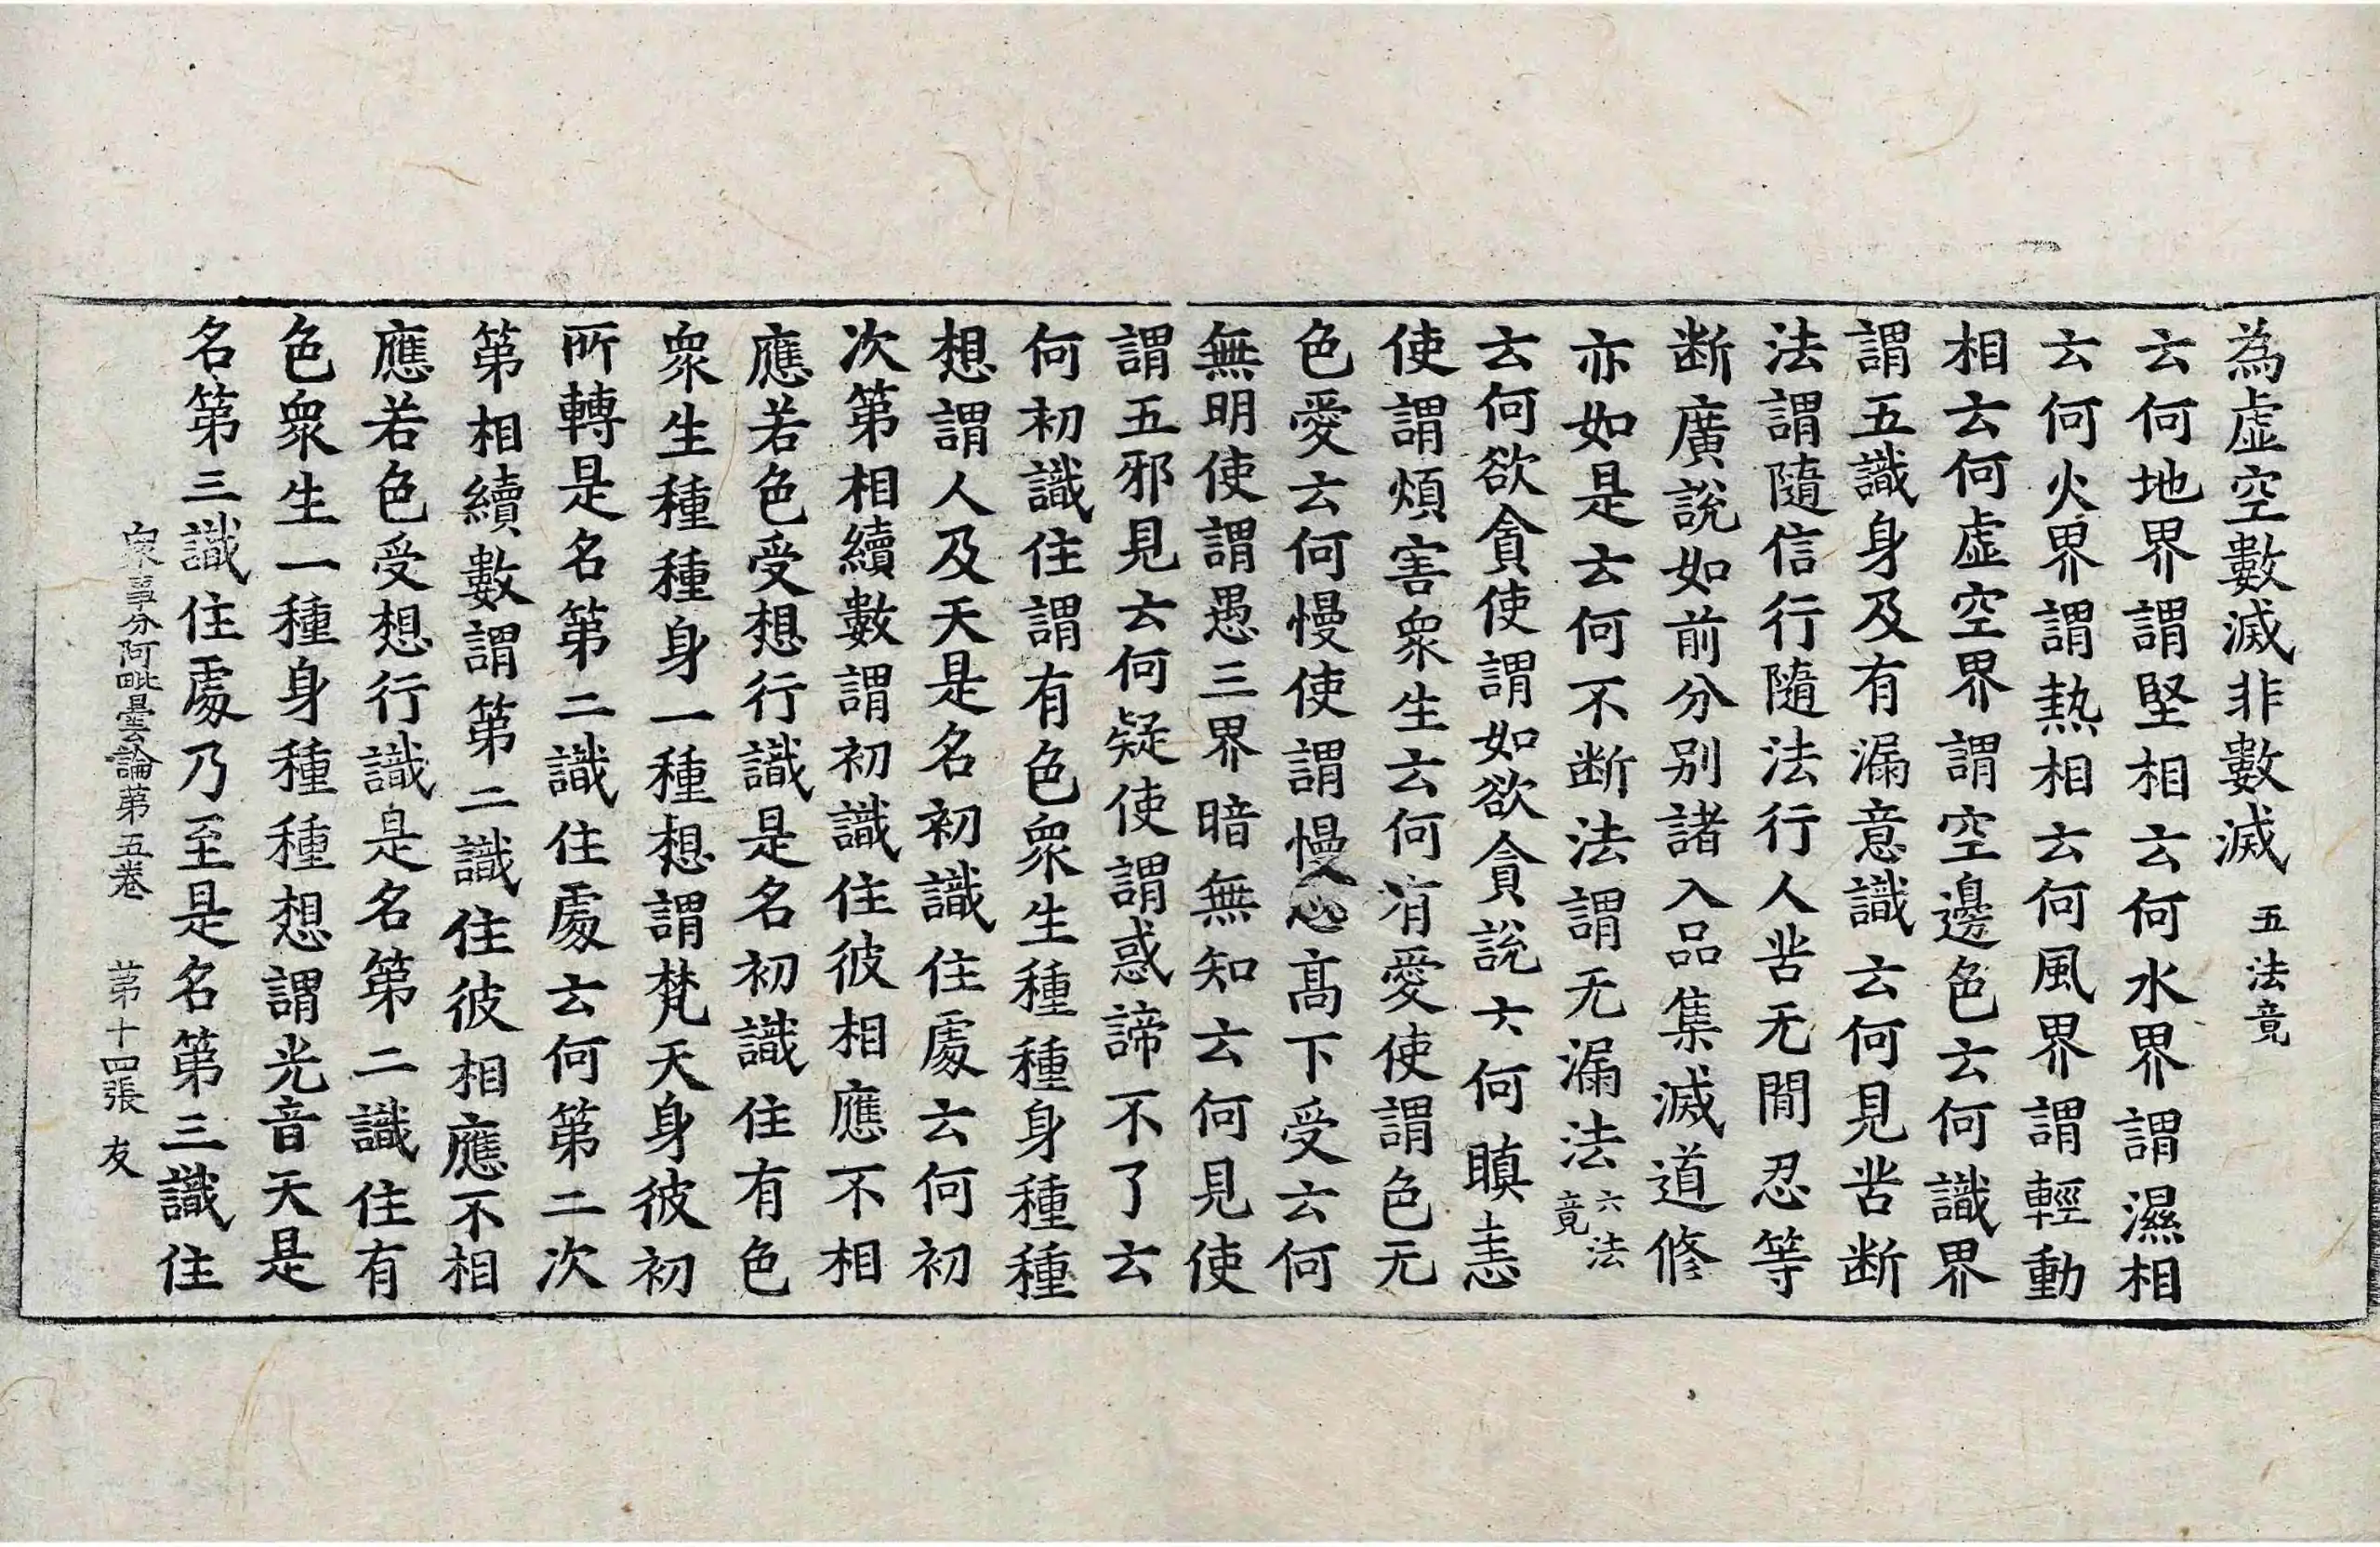 為虛空數滅非數滅 五法竟
云何地界謂堅相云何水界謂濕相
云何火界謂熱相云何風界謂輕動
相云何虛空界謂空邊色云何識界
謂五識身及有漏意識云何見苦断
法謂隨信行隨法行人苦无間忍等
断廣說如前分別諸入品集滅道修
亦如是云何不断法謂无漏法六法竟
云何欲貪使謂如欲貪說云何瞋恚
使謂煩害衆生云何有愛使謂色无
色愛云何慢使謂慢高下受云何
無明使謂愚三界暗無知云何見使
謂五邪見云何疑使謂惑諦不了云
何初識住謂有色衆生種種身種種
想謂人及天是名初識住處云何初
次第相續數謂初識住彼相應不相
應若色受想行識是名初識住有色
衆生種種身一種想謂梵天身彼初
所轉是名第二識住處云何第二次
第相續數謂第二識住彼相應不相
應若色受想行識是名第二識住有
色衆生一種身種種想謂光音天是
名第三識住處乃至是名第三識住
衆事分阿毗曇論第五卷 第十四張 友